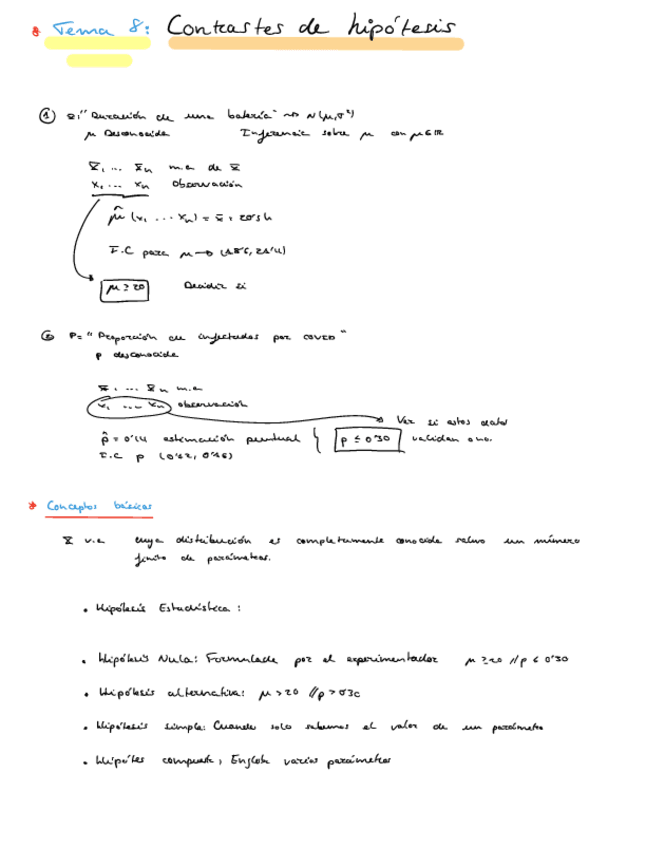 * Tema 8: Contrastes de hipótesis
① X: "Duración de una batería" ~> N(μ,σ²)
μ Desconocida Inferencia sobre μ con μ∈ℝ
X₁ ... Xn m.a de X
x₁ ... xn observación
μ̂ (x₁ ... xn) = x̄ = 20'5 h
I.C para μ → (18'6, 21'4)
μ ≥ 20 Decidir si
② P= "Proporción de infectados por COVID"
p desconocida
X₁ ... Xn m.a
x₁ ... xn observación
Ver si estos datos
p̂ = 0'14 estimación puntual p ≤ 0'30 validan o no.
I.C p (0'12, 0'16)
* Conceptos básicos
X v.a cuya distribución es completamente conocida salvo un número
finito de parámetros.
• Hipótesis Estadística :
• Hipótesis Nula: Formulada por el experimentador μ ≥ 20 // p ≤ 0'30
• Hipótesis alternativa: μ > 20 // p > 0'30
• Hipótesis simple: Cuando solo sabemos el valor de un parámetro
• Hipótes compuesta, Engloba varios parámetros